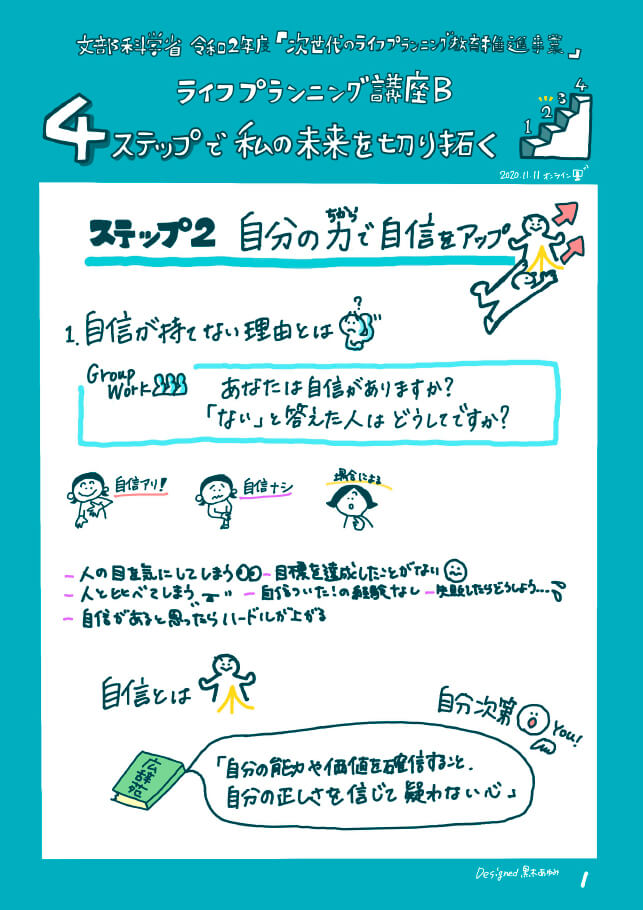 文部科学省 令和2年度「次世代のライフプランニング教育推進事業」
ライフプランニング講座B
4ステップで私の未来を切り拓く
1 2 3 4
2020.11.11 オンライン
ステップ2 自分の力で自信をアップ
ちから
1. 自信が持てない理由とは
?
Group Work
あなたは自信がありますか?
「ない」と答えた人はどうしてですか?
自信アリ! 自信ナシ 場合による
- 人の目を気にしてしまう - 目標を達成したことがない
- 人と比べてしまう - 自信ついた!の経験なし - 失敗したらどうしよう...
- 自信があると思ったらハードルが上がる
自信とは
自分次第
You!
広辞苑
「自分の能力や価値を確信すること、
自分の正しさを信じて疑わない心」
Designed 黒木あゆみ
1